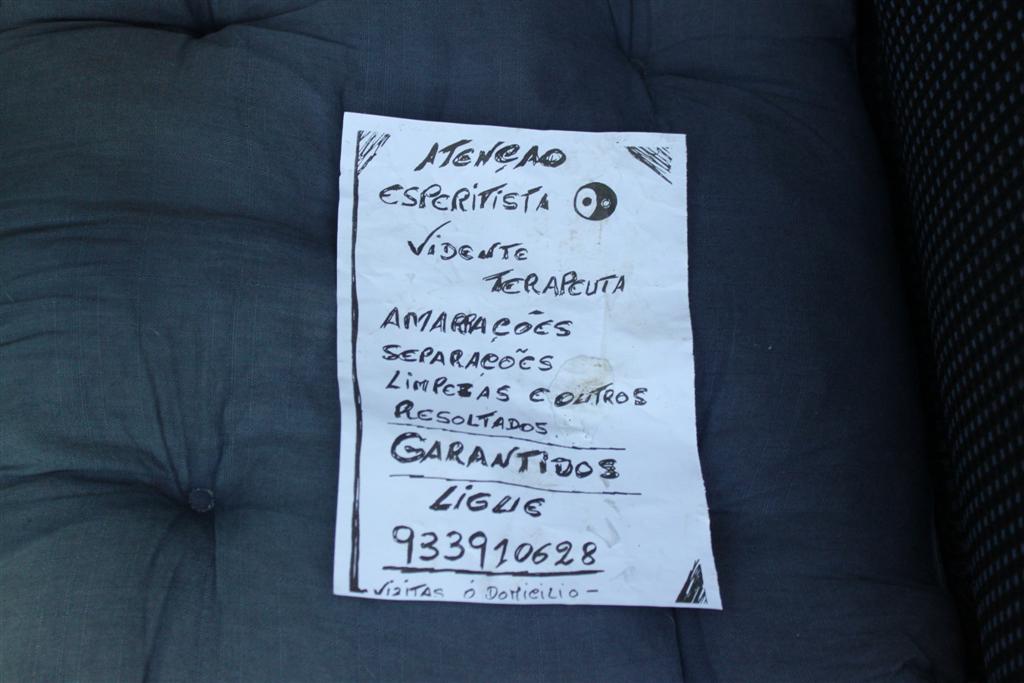 ATENÇAO
ESPERITISTA
VIDENTE
TERAPEUTA
AMARRAÇÕES
SEPARAÇÕES
LIMPEZAS E OUTROS
RESOLTADOS
GARANTIDOS
LIGUE
933910628
VIZITAS Ó DOMICILIO -